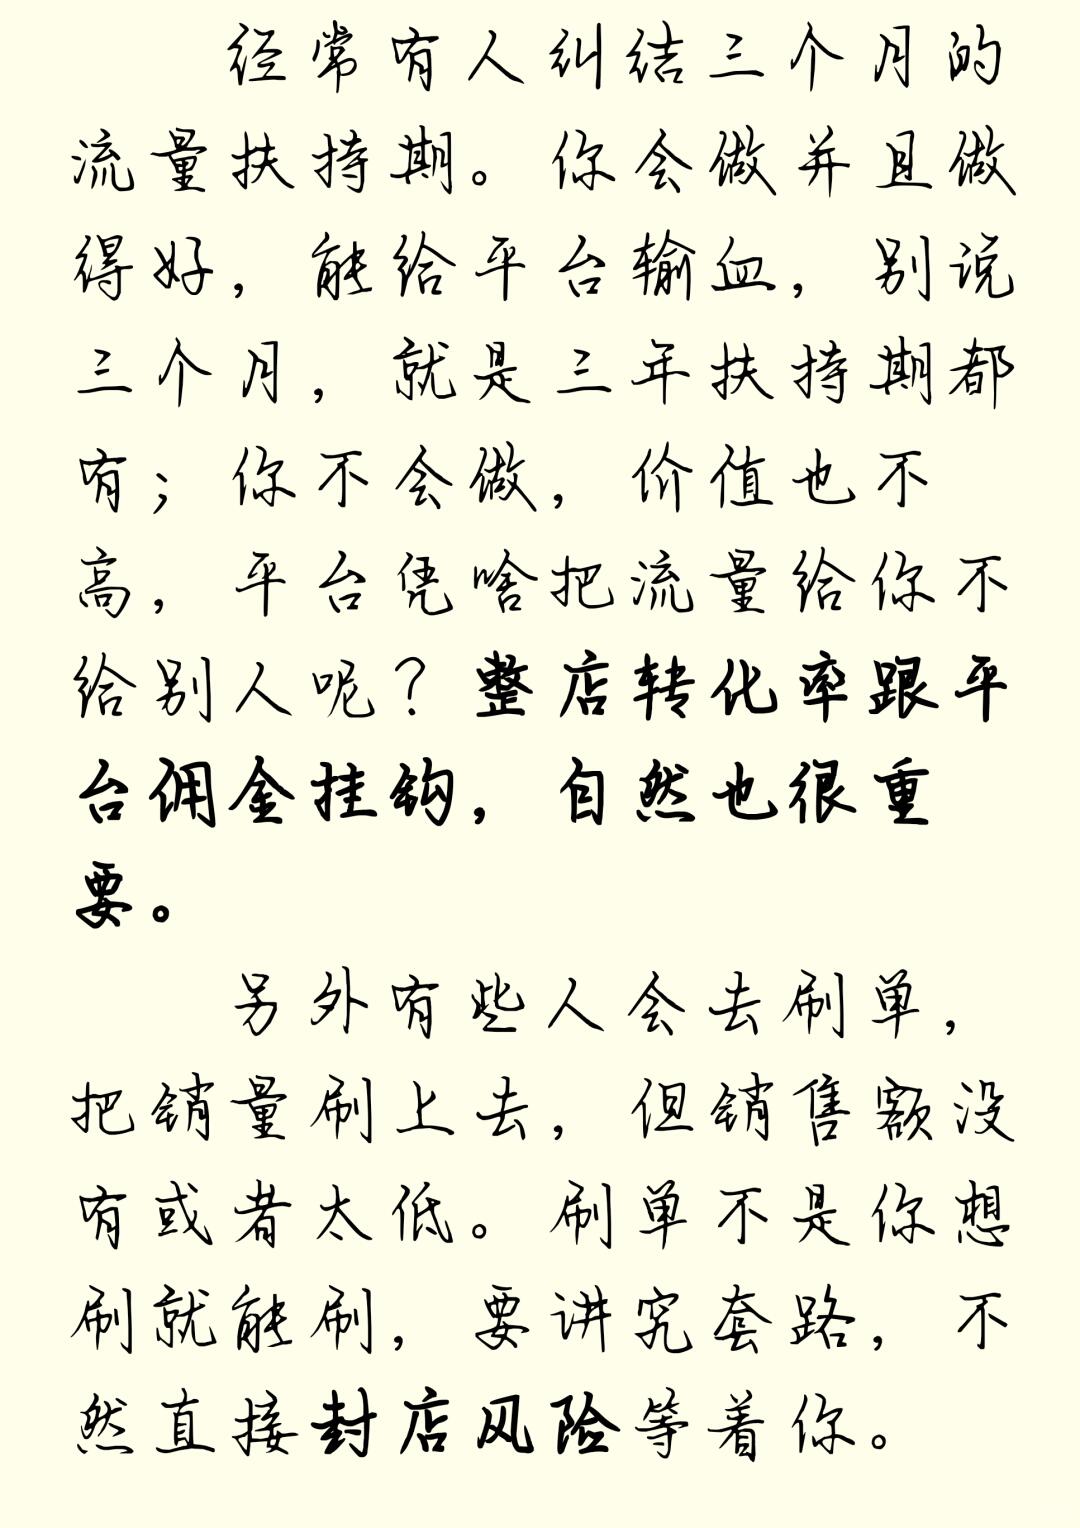 经常有人纠结三个月的
流量扶持期。你会做并且做
得好，能给平台输血，别说
三个月，就是三年扶持期都
有；你不会做，价值也不
高，平台凭啥把流量给你不
给别人呢？整店转化率跟平
台佣金挂钩，自然也很重
要。
另外有些人会去刷单，
把销量刷上去，但销售额没
有或者太低。刷单不是你想
刷就能刷，要讲究套路，不
然直接封店风险等着你。